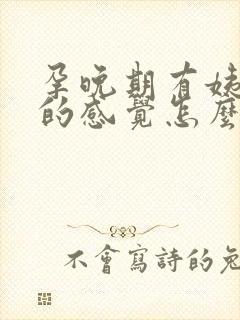 孕晚期有姨
的感覺怎麼
不會寫詩的兔